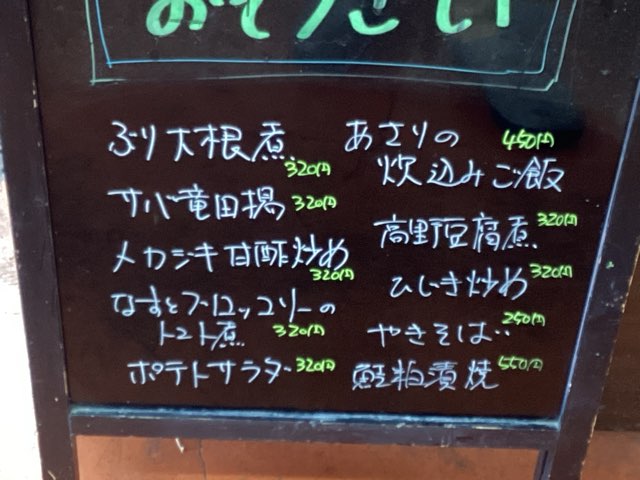 おそうざい
ぶり大根煮 320円
サバ竜田揚 320円
メカジキ甘酢炒め
320円
なすとブロッコリーの
トマト煮 320円
ポテトサラダ 320円
あさりの 450円
炊込みご飯
高野豆腐煮 320円
ひじき炒め 320円
やきそば 250円
鮭粕漬焼 550円